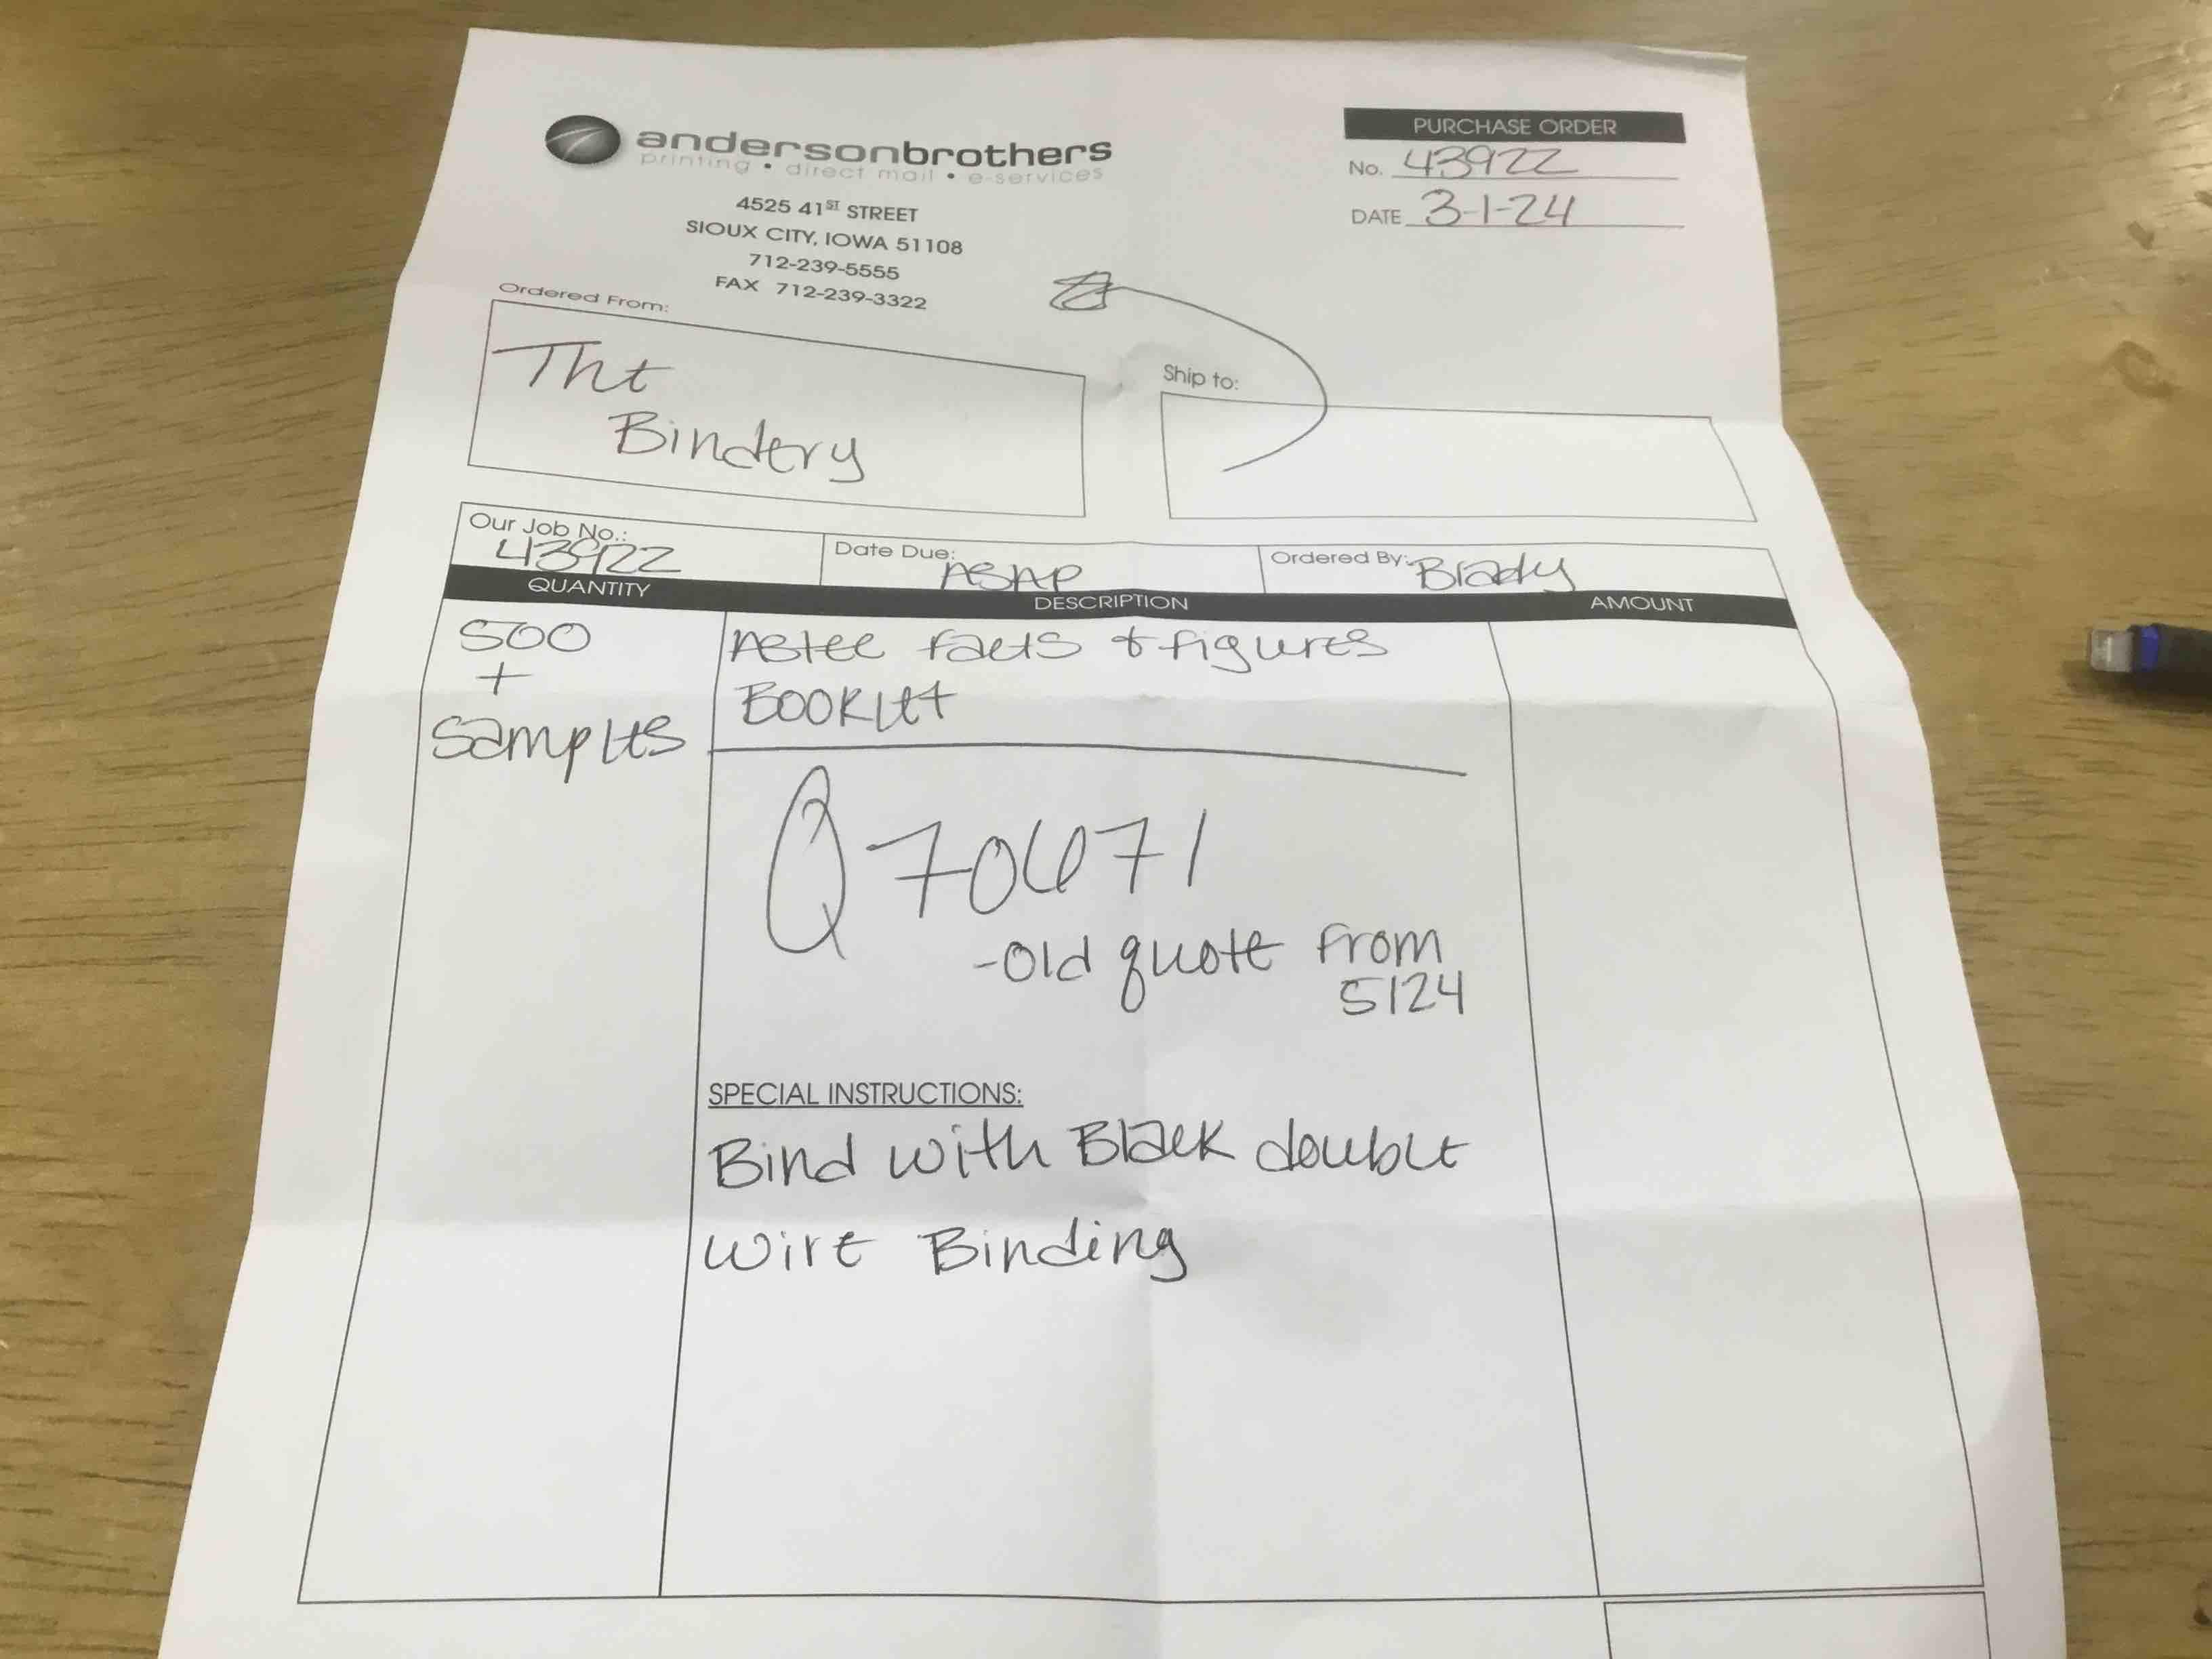 andersonbrothers
printing • direct mail • e-services
4525 41ST STREET
SIOUX CITY, IOWA 51108
712-239-5555
FAX 712-239-3322
PURCHASE ORDER
No. 43922
DATE 3-1-24
Ordered From:
The
Bindery
Ship to:
Our Job No.:
43922
Date Due: ASAP
Ordered By: Brady
QUANTITY DESCRIPTION AMOUNT
500
+
samples
facts & figures
Booklet
Q70671
-old quote from
5124
SPECIAL INSTRUCTIONS:
Bind with Black double
wire Binding